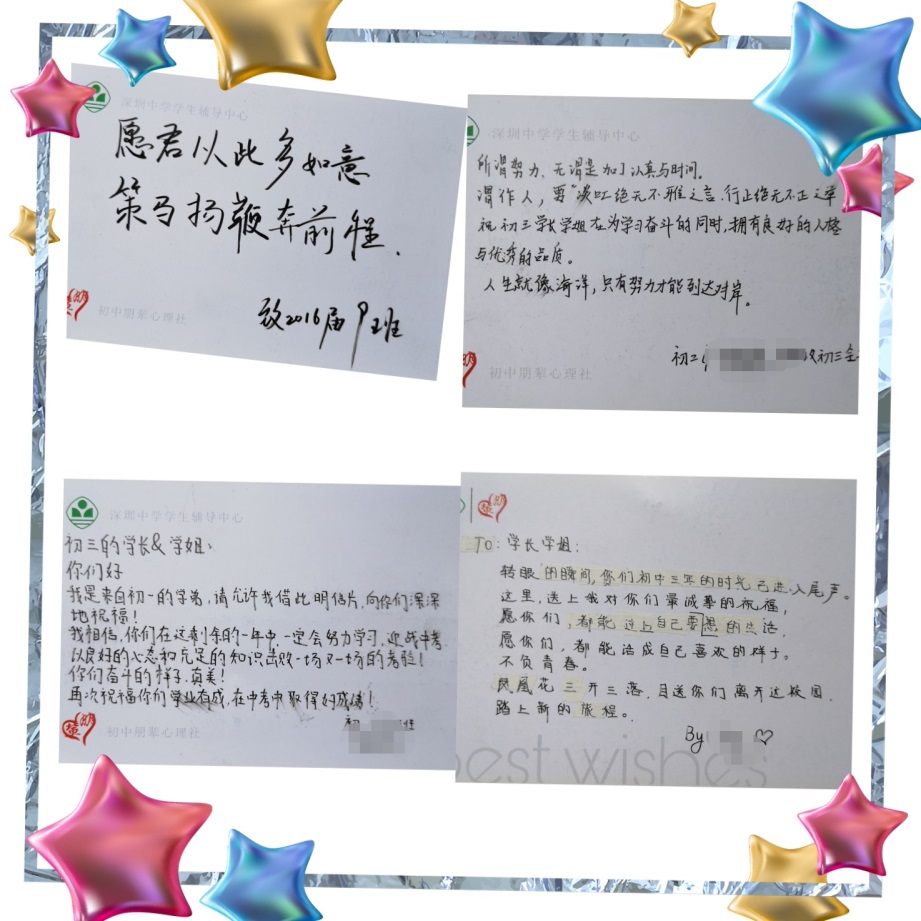 深圳中学学生辅导中心
愿君以此多如意
策马扬鞭奔前程.
致2016届9班
初中朋辈心理社
深圳中学学生辅导中心
所谓努力、无谓是加了认真与时间。
谓作人，要"谈吐绝无不雅之言、行止绝无不正之举
祝初三学长学姐在为学习奋斗的同时,拥有良好的人格
与优秀的品质。
人生就像海洋，只有努力才能到达对岸。
初二
致初三全
初中朋辈心理社
深圳中学学生辅导中心
初三的学长&学姐：
你们好
我是来自初一的学弟，请允许我借此明信片，向你们深深
地祝福！
我相信，你们在这剩余的一年中，一定会努力学习，迎战中考，
以良好的心态和充足的知识击败一场又一场的考验！
你们奋斗的样子，真美！
再次祝福你们学业有成，在中考中取得好成绩！
初
班
初中朋辈心理社
TO：学长学姐：
转眼的瞬间,你们初中三年的时光已进入尾声。
这里，送上我对你们最诚挚的祝福，
愿你们，都能过上自己要想的生活，
愿你们，都能活成自己喜欢的样子。
不负青春。
凤凰花三开三落，目送你们离开这校园，
踏上新的旅程。
By
best wishes